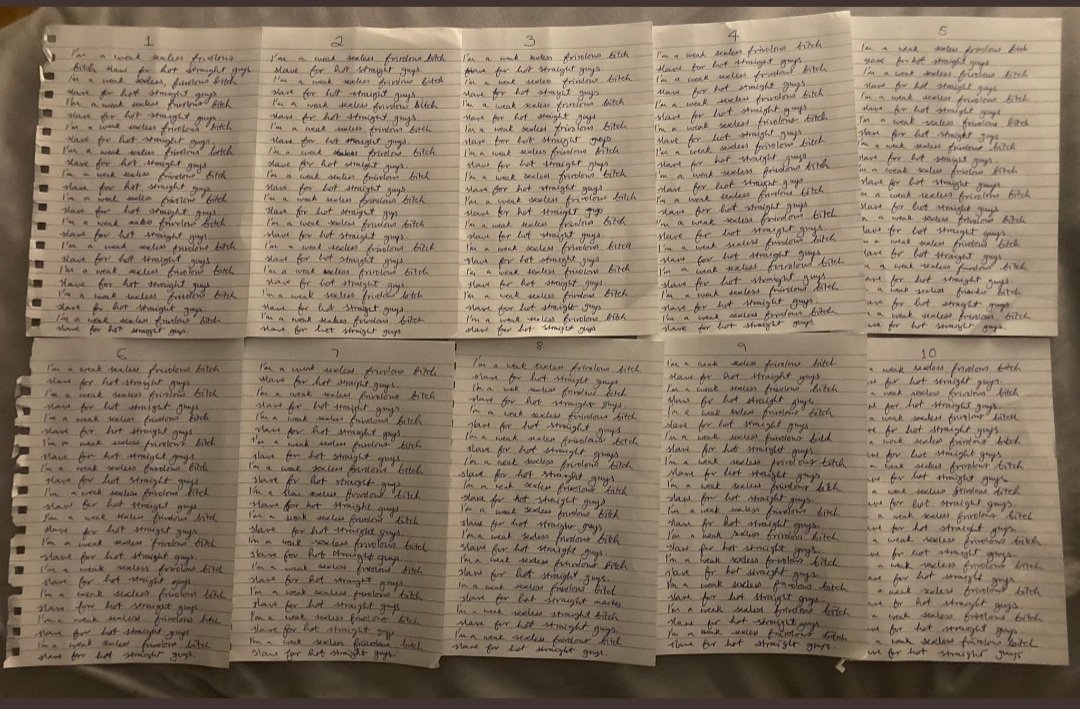 1
I'm a weak sexless frivolous
bitch slave for hot straight guys
I'm a weak sexless frivolous bitch
slave for hot straight guys
I'm a weak sexless frivolous bitch
slave for hot straight guys
I'm a weak sexless frivolous bitch
slave for hot straight guys.
I'm a weak sexless frivolous bitch
slave for hot straight guys
I'm a weak sexless frivolous bitch
slave for hot straight guys
I'm a weak sexless frivolous bitch
slave for hot straight guys
I'm a weak sexless frivolous bitch
slave for hot straight guys
I'm a weak sexless frivolous bitch
slave for hot straight guys
I'm a weak sexless frivolous bitch
slave for hot straight guys
I'm a weak sexless frivolous bitch
slave for hot straight guys.
I'm a weak sexless frivolous bitch
slave for hot straight guys.
2
I'm a weak sexless frivolous bitch
slave for hot straight guys
I'm a weak sexless frivolous bitch
slave for hot straight guys
I'm a weak sexless frivolous bitch
slave for hot straight guys
I'm a weak sexless frivolous bitch
slave for hot straight guys.
I'm a weak sexless frivolous bitch
slave for hot straight guys
I'm a weak sexless frivolous bitch
slave for hot straight guys
I'm a weak sexless frivolous bitch
slave for hot straight guys
I'm a weak sexless frivolous bitch
slave for hot straight guys
I'm a weak sexless frivolous bitch
slave for hot straight guys
I'm a weak sexless frivolous bitch
slave for hot straight guys.
I'm a weak sexless frivolous bitch
slave for hot straight guys
I'm a weak sexless frivolous bitch
slave for hot straight guys
3
I'm a weak sexless frivolous bitch
slave for hot straight guys.
I'm a weak sexless frivolous bitch
slave for hot straight guys
I'm a weak sexless frivolous bitch
slave for hot straight guys
I'm a weak sexless frivolous bitch
slave for hot straight guys
I'm a weak sexless frivolous bitch
slave for hot straight guys
I'm a weak sexless frivolous bitch
slave for hot straight guys
I'm a weak sexless frivolous bitch
slave for hot straight guys
I'm a weak sexless frivolous bitch
slave for hot straight guys
I'm a weak sexless frivolous bitch
slave for hot straight guys
I'm a weak sexless frivolous bitch
slave for hot straight guys.
I'm a weak sexless frivolous bitch
slave for hot straight guys
I'm a weak sexless frivolous bitch
slave for hot straight guys
4
I'm a weak sexless frivolous bitch
slave for hot straight guys
I'm a weak sexless frivolous bitch
slave for hot straight guys
I'm a weak sexless frivolous bitch
slave for hot straight guys
I'm a weak sexless frivolous bitch
slave for hot straight guys
I'm a weak sexless frivolous bitch
slave for hot straight guys
I'm a weak sexless frivolous bitch
slave for hot straight guys
I'm a weak sexless frivolous bitch
slave for hot straight guys
I'm a weak sexless frivolous bitch
slave for hot straight guys
I'm a weak sexless frivolous bitch
slave for hot straight guys
I'm a weak sexless frivolous bitch
slave for hot straight guys
I'm a weak sexless frivolous bitch
slave for hot straight guys.
I'm a weak sexless frivolous bitch
slave for hot straight guys
5
I'm a weak sexless frivolous bitch
slave for hot straight guys.
I'm a weak sexless frivolous bitch
slave for hot straight guys
I'm a weak sexless frivolous bitch
slave for hot straight guys.
I'm a weak sexless frivolous bitch
slave for hot straight guys
I'm a weak sexless frivolous bitch
slave for hot straight guys.
a weak sexless frivolous bitch
slave for hot straight guys
a weak sexless frivolous bitch
slave for hot straight guys
a weak sexless frivolous bitch
lave for hot straight guys
a weak sexless frivolous bitch
lave for hot straight guys
a weak sexless frivolous bitch
ave for hot straight guys
weak sexless frivolous bitch
ave for hot straight guys
a weak sexless frivolous bitch
ve for hot straight guys.
6
I'm a weak sexless frivolous bitch
slave for hot straight guys
I'm a weak sexless frivolous bitch
slave for hot straight guys
I'm a weak sexless frivolous bitch
slave for hot straight guys
I'm a weak sexless frivolous bitch
slave for hot straight guys
I'm a weak sexless frivolous bitch
slave for hot straight guys
I'm a weak sexless frivolous bitch
slave for hot straight guys
I'm a weak sexless frivolous bitch
slave for hot straight guys
I'm a weak sexless frivolous bitch
slave for hot straight guys
I'm a weak sexless frivolous bitch
slave for hot straight guys
I'm a weak sexless frivolous bitch
slave for hot straight guys
I'm a weak sexless frivolous bitch
slave for hot straight guys
I'm a weak sexless frivolous bitch
slave for hot straight guys.
7
I'm a weak sexless frivolous bitch
slave for hot straight guys.
I'm a weak sexless frivolous bitch
slave for hot straight guys.
I'm a weak sexless frivolous bitch
slave for hot straight guys
I'm a weak sexless frivolous bitch
slave for hot straight guys
I'm a weak sexless frivolous bitch
slave for hot straight guys
I'm a sexless frivolous bitch
slave for hot straight guys
I'm a weak sexless frivolous bitch
slave for hot straight guys.
I'm a weak sexless frivolous bitch
slave for hot straight guys
I'm a weak sexless frivolous bitch
slave for hot straight guys
I'm a weak sexless frivolous bitch
slave for hot straight guys
I'm a weak sexless frivolous bitch
slave for hot straight guys
I'm a weak sexless frivolous bitch
slave for hot straight guys.
8
I'm a weak sexless frivolous bitch
slave for hot straight guys
I'm a weak sexless frivolous bitch
slave for hot straight guys
I'm a weak sexless frivolous bitch
slave for hot straight guys
I'm a weak sexless frivolous bitch
slave for hot straight guys
I'm a weak sexless frivolous bitch
slave for hot straight guys
I'm a weak sexless frivolous bitch
slave for hot straight guys
I'm a weak sexless frivolous bitch
slave for hot straight guys
I'm a weak sexless frivolous bitch
slave for hot straight guys
I'm a weak sexless frivolous bitch
slave for hot straight guys
I'm a weak sexless frivolous bitch
slave for hot straight
I'm a weak sexless straight bitch
slave for hot straight guys
I'm a weak sexless frivolous bitch
slave for hot straight guys.
9
I'm a weak sexless frivolous bitch
slave for hot straight guys
I'm a weak sexless frivolous bitch
slave for hot straight guys.
I'm a weak sexless frivolous bitch
slave for hot straight guys
I'm a weak sexless frivolous bitch
slave for hot straight guys
I'm a weak sexless frivolous bitch
slave for hot straight guys
I'm a weak sexless frivolous bitch
slave for hot straight guys.
I'm a weak sexless frivolous bitch
slave for hot straight guys.
I'm a weak sexless frivolous bitch
slave for hot straight guys
I'm a weak sexless frivolous bitch
slave for hot straight guys
I'm a weak sexless frivolous bitch
slave for hot straight guys
I'm a weak sexless frivolous bitch
slave for hot straight guys.
I'm a weak sexless frivolous bitch
slave for hot straight guys.
10
a weak sexless frivolous bitch
ve for hot straight guys
a weak sexless frivolous bitch
ve for hot straight guys.
a weak sexless frivolous bitch
ve for hot straight guys.
a weak sexless frivolous bitch
ve for hot straight guys
a weak sexless frivolous bitch
ve for hot straight guys
a weak sexless frivolous bitch
ve for hot straight guys.
a weak sexless frivolous bitch
ve for hot straight guys
a weak sexless frivolous bitch
ve for hot straight guys
a weak sexless frivolous bitch
ve for hot straight guys
a weak sexless frivolous bitch
ve for hot straight guys
a weak sexless frivolous bitch
ve for hot straight guys
weak sexless frivolous bitch
ve for hot straight guys